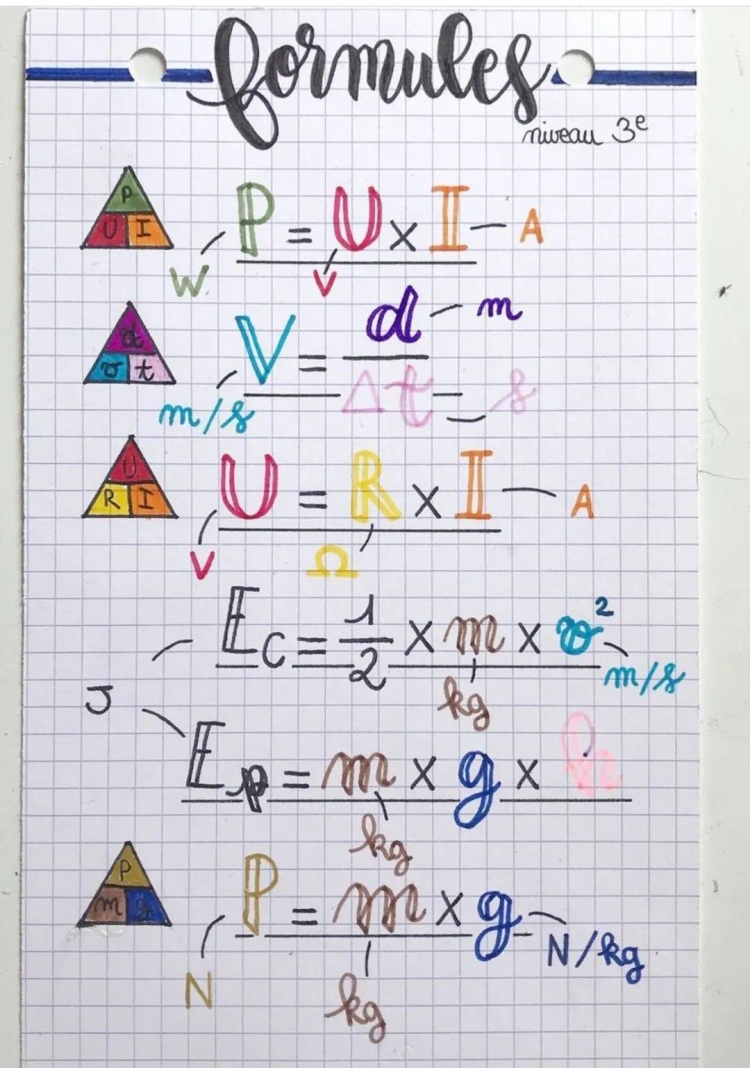 formules
niveau 3e
P
U I
P = U x I — A
W
V
d
v t
V = d / Δt
m
m/s
s
U
R I
U = R x I — A
V
Ω
Ec = 1/2 x m x v²
m/s
kg
J
Ep = m x g x h
kg
P
m g
P = m x g
N/kg
N
kg